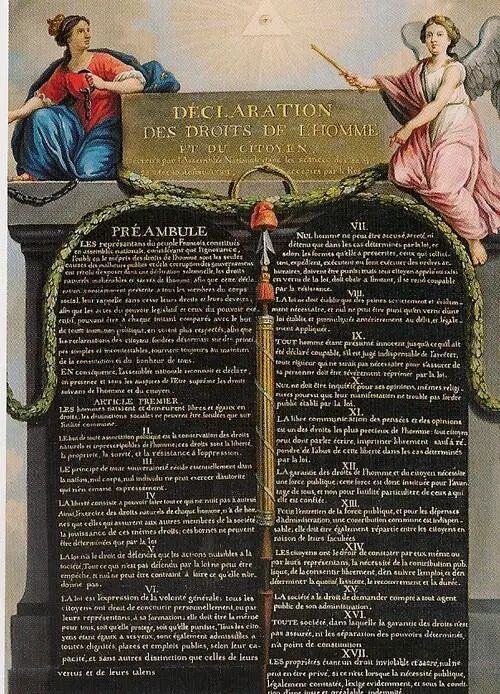 DÉCLARATION
DES DROITS DE L'HOMME
ET DU CITOYEN,
Décrétés par l'Assemblée Nationale dans les séances des 20, 21
acceptés par le Roi
PRÉAMBULE
LES représentans du peuple François, constitués
en assemblée nationale, considérant que l'ignorance,
l'oubli ou le mépris des droits de l'homme sont les seules
causes des malheurs publics et de la corruption des gouvernemens
ont résolu d'exposer dans une déclaration solemnelle, les droits
naturels, inaliénables et sacrés de l'homme, afin que cette décla-
ration, constamment présente à tous les membres du corps
social, leur rappelle sans cesse leurs droits et leurs devoirs,
afin que les actes du pouvoir législatif et ceux du pouvoir exé-
cutif, pouvant être à chaque instant comparés avec le but
de toute institution politique, en soient plus respectés, afin que
les réclamations des citoyens, fondées désormais sur des prin-
cipes simples et incontestables, tournent toujours au maintien
de la constitution et du bonheur de tous.
EN conséquence, l'assemblée nationale reconnoit et déclare,
en présence et sous les auspices de l'Etre suprême les droits
suivans de l'homme et du citoyen.
ARTICLE PREMIER.
LES hommes naissent et demeurent libres et égaux en
droits, les distinctions sociales ne peuvent être fondées que sur
l'utilité commune.
II.
LE but de toute association politique est la conservation des droits
naturels et imprescriptibles de l'homme; ces droits sont la liberté,
la propriété, la sureté, et la résistance à l'oppression.
III.
LE principe de toute souveraineté réside essentiellement dans
la nation, nul corps, nul individu ne peut exercer d'autorité
qui n'en émane expressement.
IV.
LA liberté consiste à pouvoir faire tout ce qui ne nuit pas à autrui
Ainsi, l'exercice des droits naturels de chaque homme, n'a de bor-
nes que celles qui assurent aux autres membres de la société
la jouissance de ces mêmes droits; ces bornes ne peuvent
être déterminées que par la loi
V.
LA loi n'a le droit de défendre que les actions nuisibles à la
société. Tout ce qui n'est pas défendu par la loi ne peut être
empêché, et nul ne peut être contraint à faire ce qu'elle n'or-
donne pas.
VI.
LA loi est l'expression de la volonté générale; tous les
citoyens ont droit de concourir personnellement, ou par
leurs représentans, à sa formation; elle doit être la même
pour tous, soit qu'elle protège, soit qu'elle punisse. Tous les ci-
toyens étant égaux à ses yeux, sont également admissibles à
toutes dignités, places et emplois publics, selon leur ca-
pacité, et sans autres distinction que celles de leurs
vertus et de leurs talens
VII.
NUL homme ne peut être accusé, arrêté, ni
détenu que dans les cas déterminés par la loi, et
selon les formes qu'elle a prescrites, ceux qui sollici-
tent, expédient, exécutent ou font exécuter des ordres ar-
bitraires, doivent être punis; mais tout citoyen appelé ou saisi
en vertu de la loi, doit obéir à l'instant, il se rend coupable
par la résistance.
VIII.
LA loi ne doit établir que des peines strictement et évidem-
ment nécessaire, et nul ne peut être puni qu'en vertu d'une
loi établie et promulguée antérieurement au délit, et légale-
ment appliquée.
IX.
TOUT homme étant présumé innocent jusqu'à ce qu'il ait
été déclaré coupable, s'il est jugé indispensable de l'arrêter,
toute rigueur qui ne serait pas nécessaire pour s'assurer de
sa personne doit être sévèrement réprimée par la loi.
X.
NUL ne doit être inquiété pour ses opinions, mêmes religi-
euses pourvu que leur manifestation ne trouble pas l'ordre
public établi par la loi.
XI.
LA libre communication des pensées et des opinions
est un des droits les plus precieux de l'homme; tout citoyen
peut donc parler écrire, imprimer librement sauf à ré-
pondre de l'abus de cette liberté dans les cas déterminés
par la loi.
XII.
LA garantie des droits de l'homme et du citoyen nécessite
une force publique; cette force est donc instituée pour l'avan-
tage de tous, et non pour l'utilité particulière de ceux a qui
elle est confiée.
XIII.
POUR l'entretien de la force publique, et pour les dépenses
d'administration, une contribution commune est indispen-
sable, elle doit être également répartie entre les citoyens en
raison de leurs facultés
XIV.
LES citoyens ont le droit de constater par eux même ou
par leurs représentans, la nécessité de la contribution pub-
lique, de la consentir librement, d'en suivre l'emploi, et d'en
déterminer la quotité, l'assiette, le recouvrement et la durée.
XV.
LA société a le droit de demander compte a tout agent
public de son administration.
XVI.
TOUTE société, dans laquelle la garantie des droits n'est
pas assuré, ni les séparation des pouvoirs déterminée,
n'a point de constitution
XVII.
LES propriétés étant un droit inviolable et sacré, nul ne
peut en être privé, si ce n'est lorsque la nécessité publique,
légalement constatée, l'exige évidemment, et sous la condi-
tion d'une juste et préalable indemnité